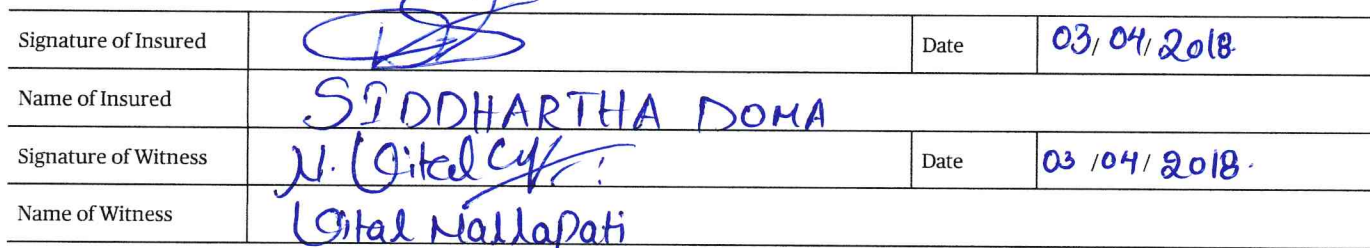 Signature of Insured Date 03/04/2018
Name of Insured SIDDHARTHA DOMA
Signature of Witness Date 03/04/2018.
Name of Witness Mallapati